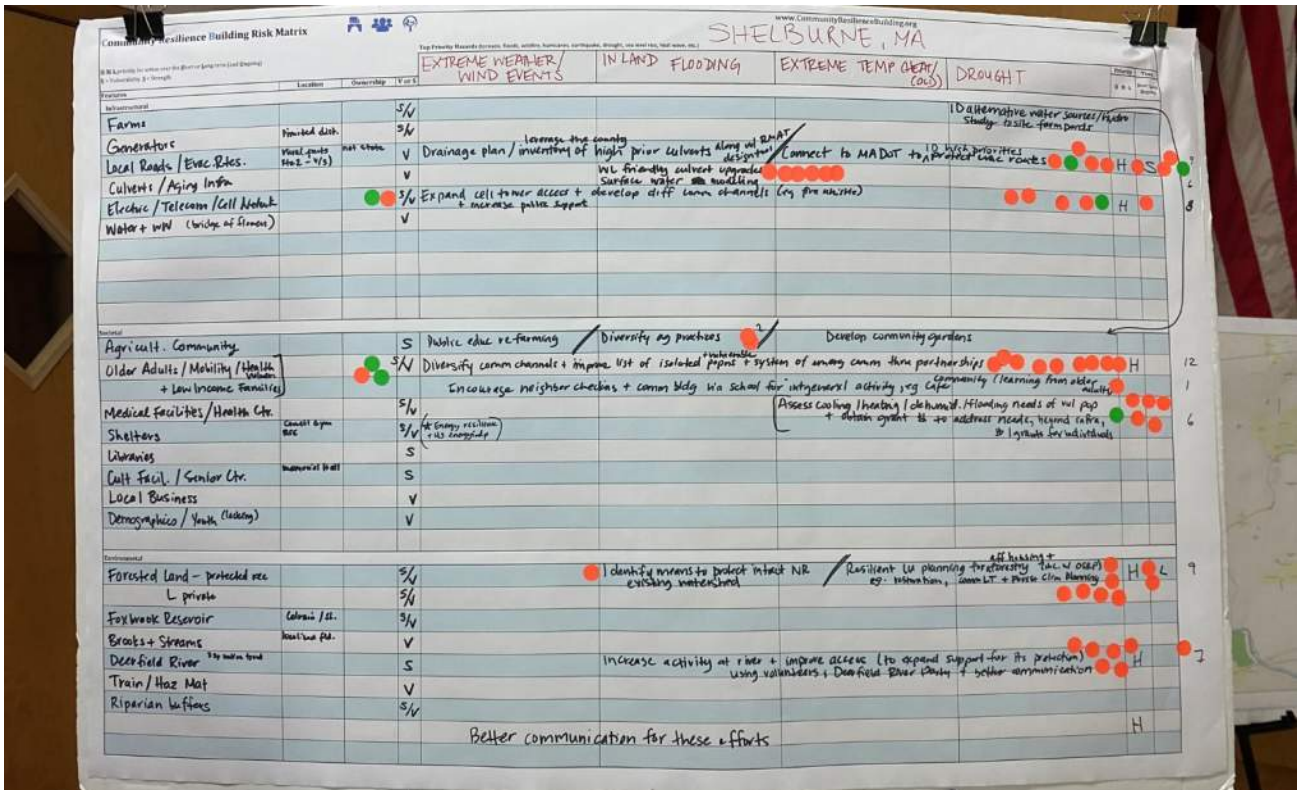 Community Resilience Building Risk Matrix
www.CommunityResilienceBuilding.org
SHELBURNE, MA
Top Priority Hazards (tornado, floods, wildfire, hurricanes, earthquake, drought, sea level rise, heat wave, etc.)
H M L priority for action over the Short or Long term (and Ongoing)
V = Vulnerability S = Strength
EXTREME WEATHER/ WIND EVENTS
INLAND FLOODING
EXTREME TEMP (HEAT/ COLD)
DROUGHT
Priority
Time
H M L
Features
Location
Ownership
V or S
Infrastructural
Farms
S/V
ID alternative water sources/hydro
study to site farm ponds
Generators
limited dist.
S/V
Local Roads / Evac. Rtes.
not state
V
Drainage plan / leverage the county inventory of high prior culverts along w/ RMAT design tool
/ Connect to MADOT to ID high priorities + protect evac routes
H
S
7
Culverts / Aging Infra
V
WL friendly culvert upgrades
surface water modeling
6
Electric / Telecom / Cell Network
S/V
Expand cell tower access + develop diff comm channels
+ increase public support
H
8
Water + WW (bridge of flowers)
V
Societal
Agricult. Community
S
Public educ re-farming
/ Diversify ag practices
2
/ Develop community gardens
Older Adults / Mobility / Health
+ Low Income Families
S/V
Diversify comm channels + improve list of isolated + vulnerable popns + system of among comm thru partnerships
H
12
Encourage neighbor checkins + comm bldg via school for intgenernl activity, eg cafe community / learning from older adults
1
Medical Facilities / Health Ctr.
S/V
Assess cooling / heating / dehumid. / flooding needs of vul pop
+ obtain grant $ to address needs, beyond infra,
grants for individuals
6
Shelters
S/V
* Energy resilience
Libraries
S
Cult Facil. / Senior Ctr.
memorial hall
S
Local Business
V
Demographics / Youth (lacking)
V
Environmental
Forested Land - protected rec
S/V
Identify means to protect intact NR
existing watershed
/ Resilient LU planning for aff housing + forestry (incl w OSRP)
eg. restoration,
H
L
9
L private
S/V
Foxbrook Reservoir
Colrain /
S/V
Brooks + Streams
V
Deerfield River
S
Increase activity at river + improve access (to expand support for its protection)
using volunteers, Deerfield River Party + better communication
H
7
Train / Haz Mat
V
Riparian buffers
S/V
Better communication for these efforts
H